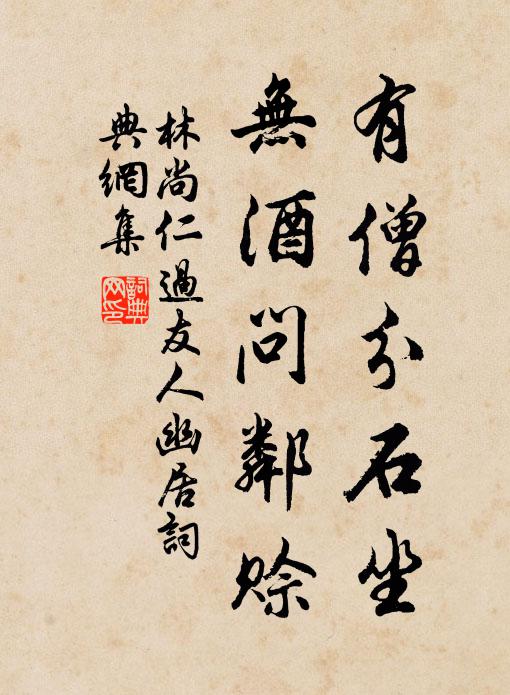 有僧分石坐
無酒問鄰賒
林尚仁過友人幽居詞
典網集
詞典网印